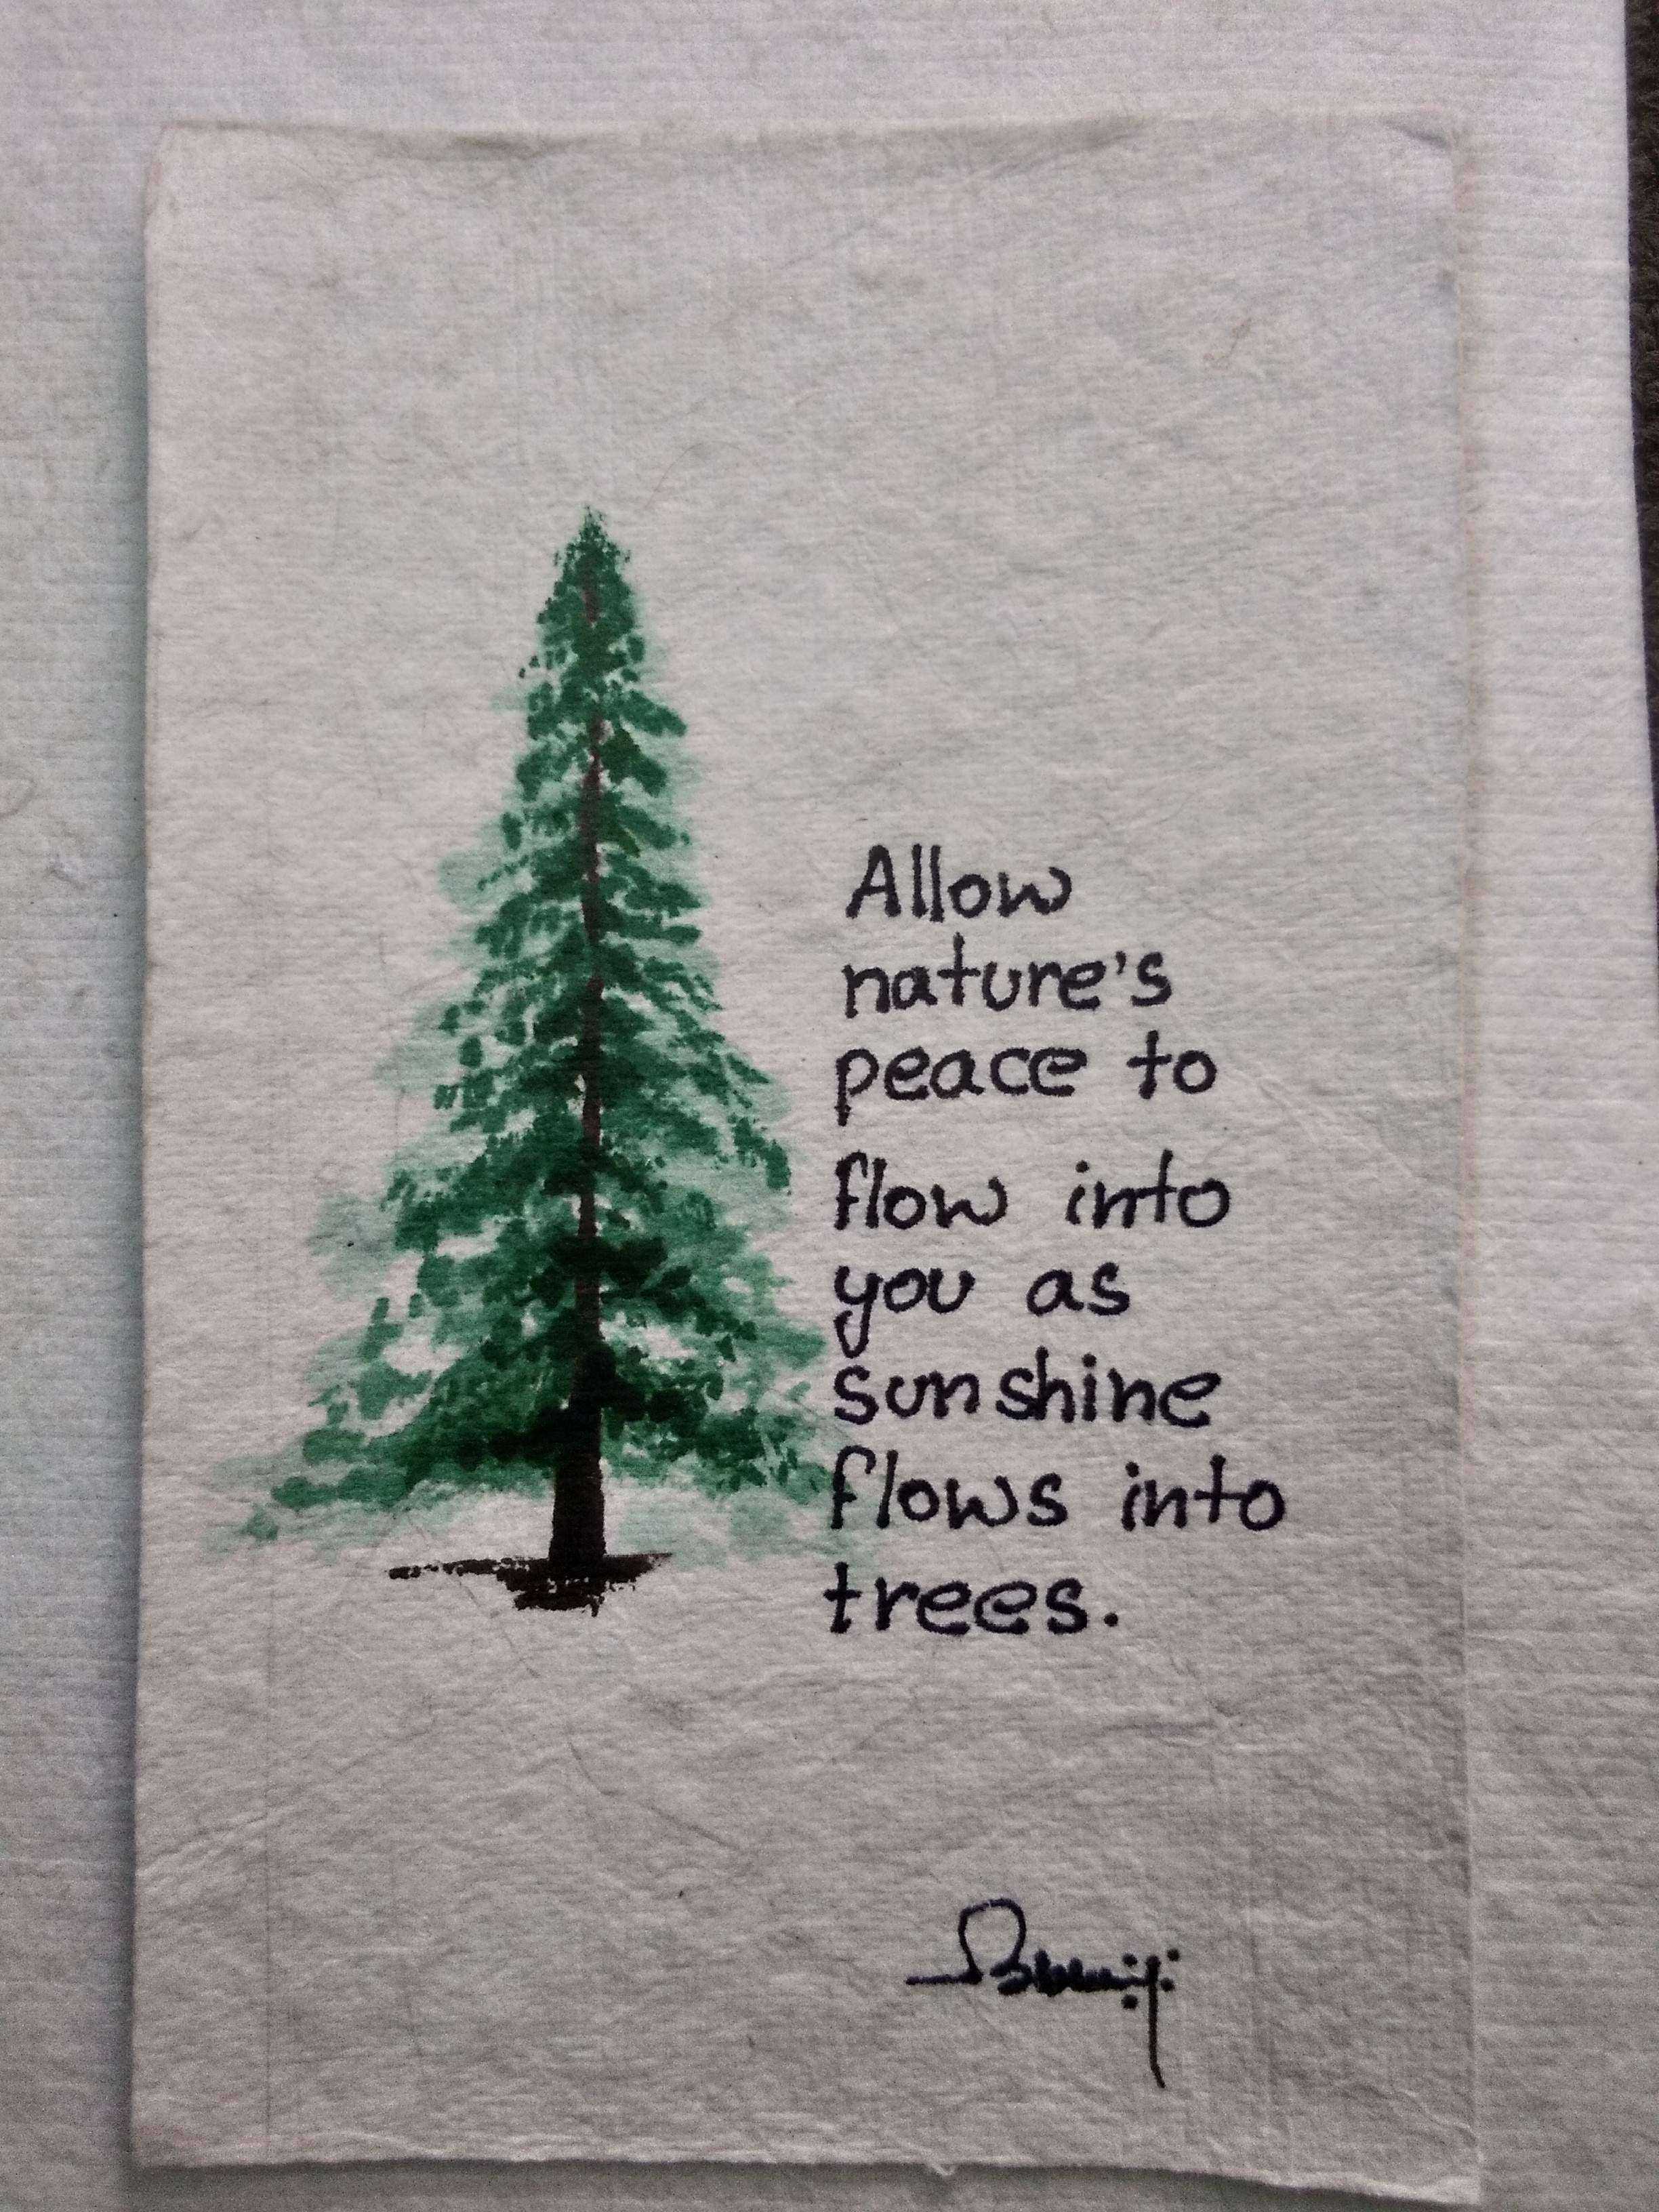 Allow
nature's
peace to
flow into
you as
sunshine
flows into
trees.